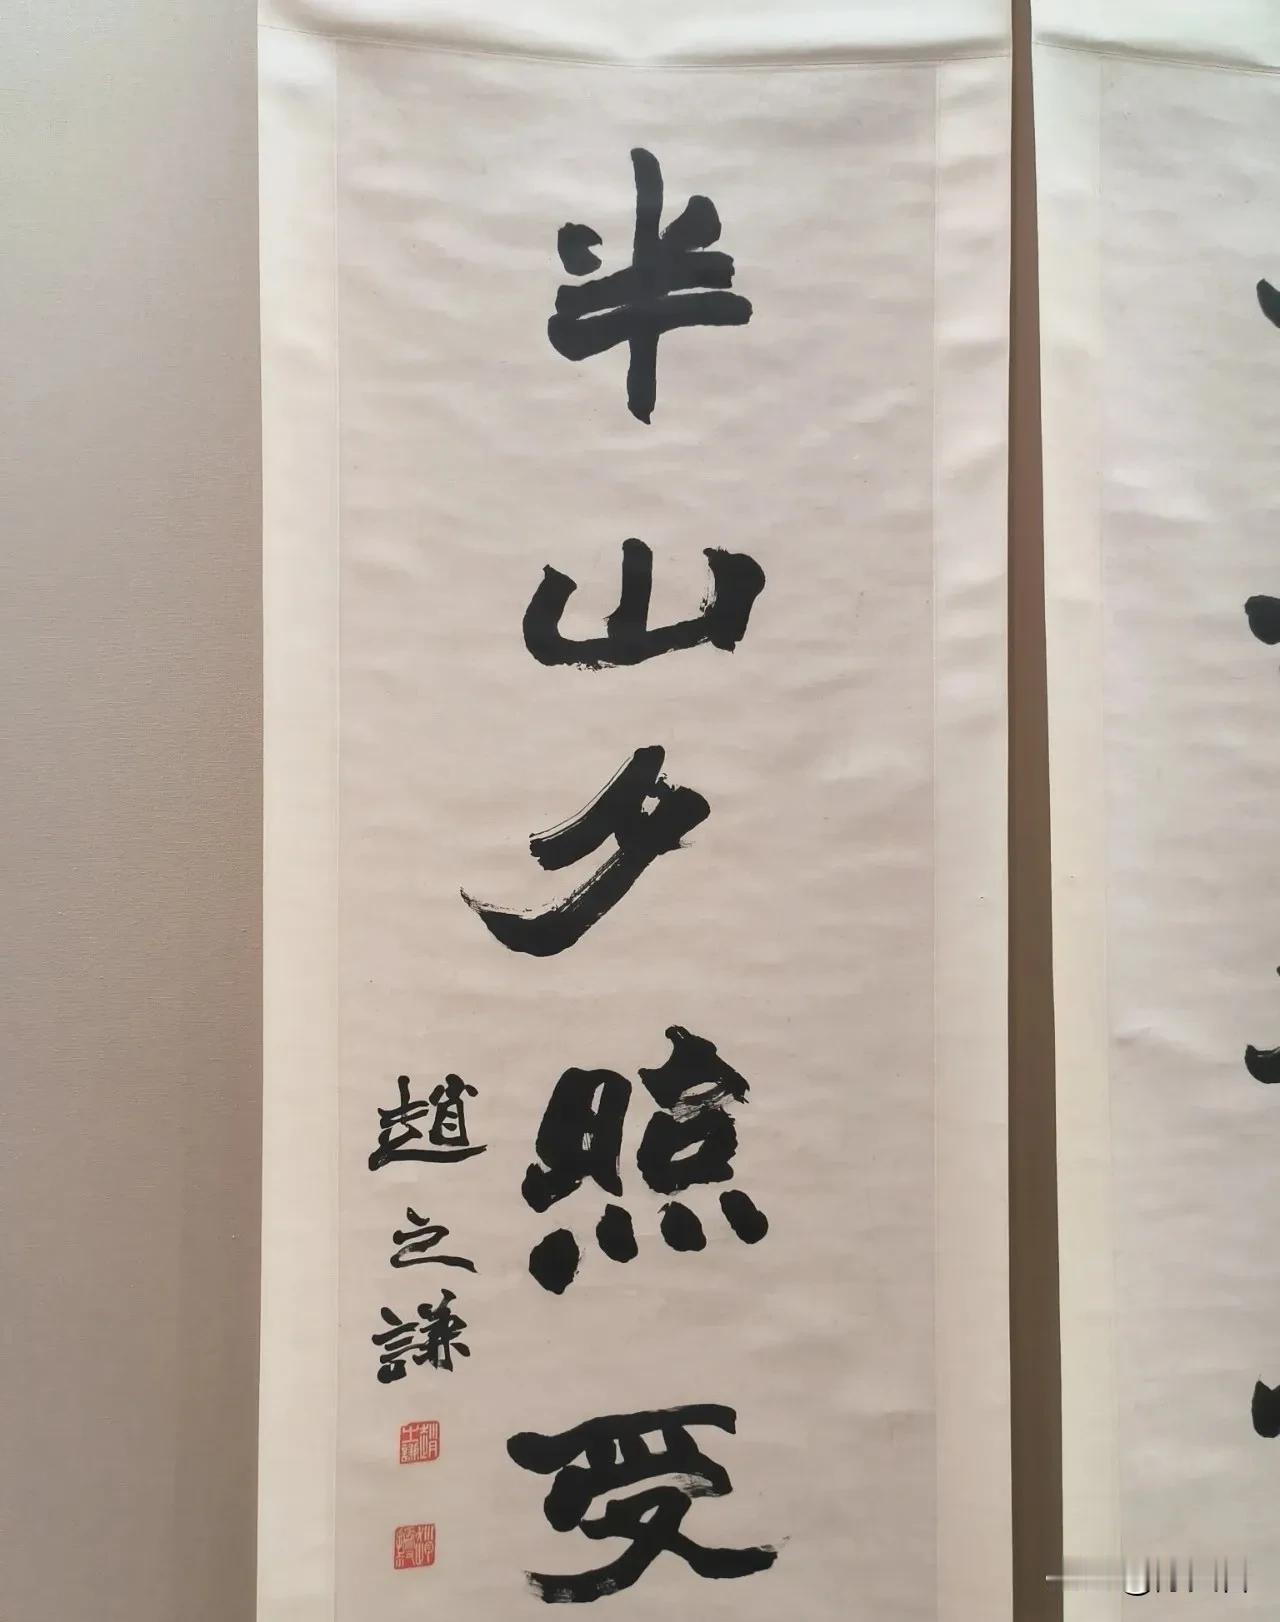 半山夕照受
趙之謙